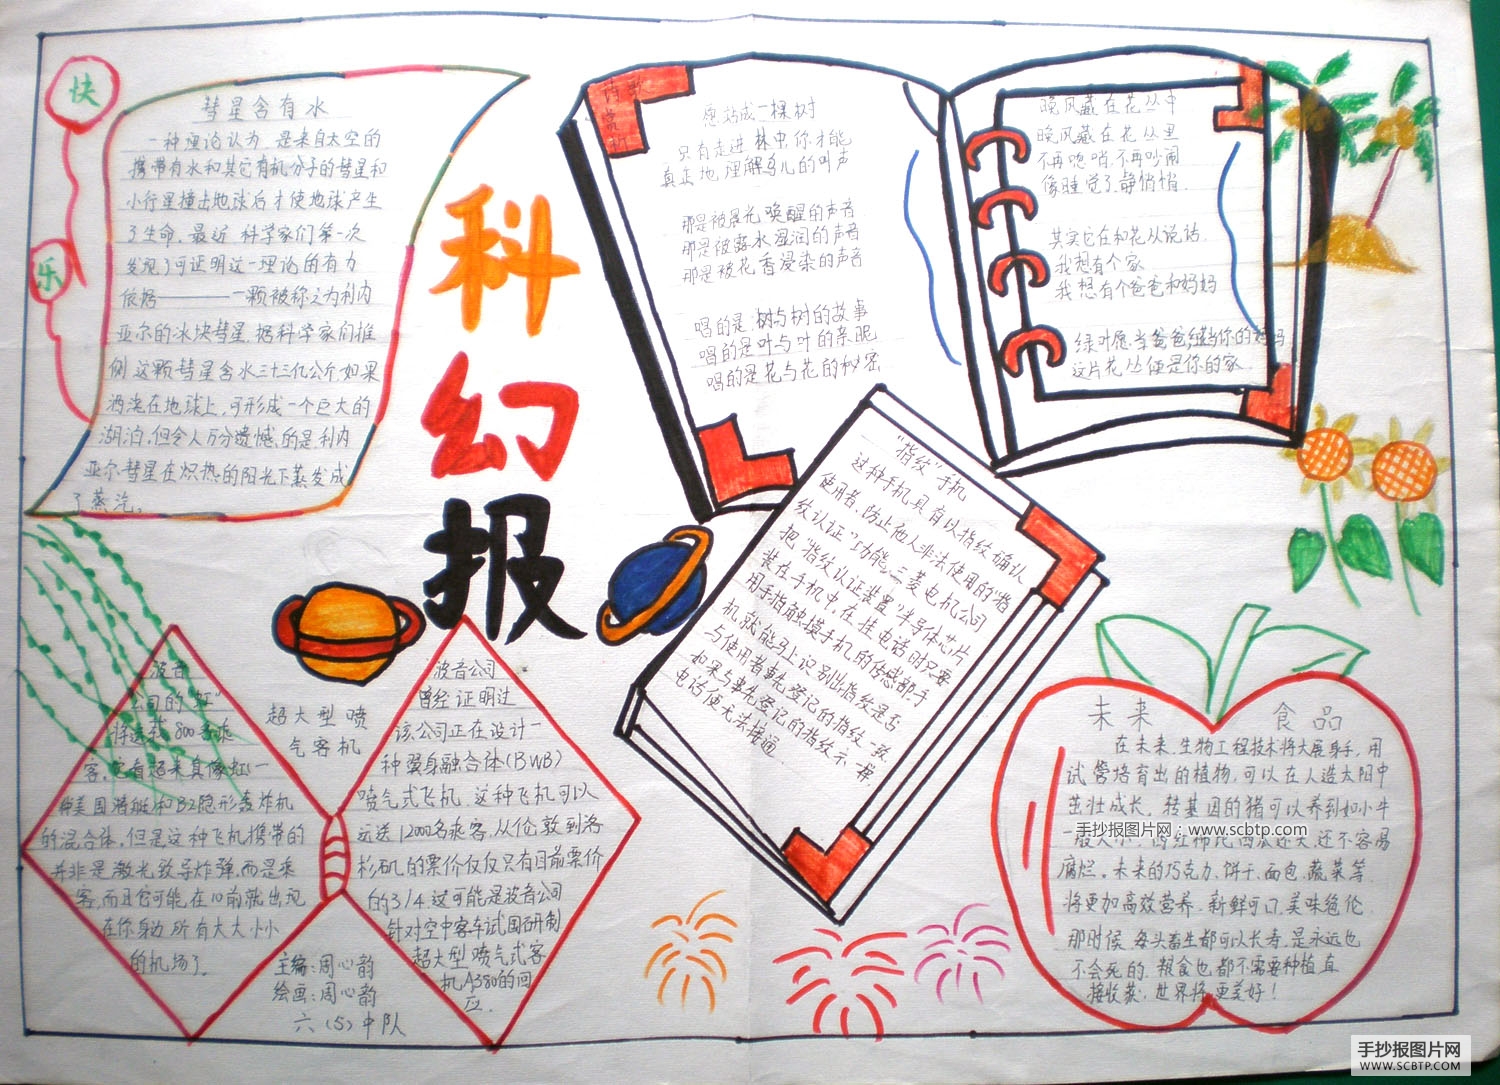 快
乐
彗星含有水
一种理论认为 是来自太空的
携带有水和其它有机分子的彗星和
小行星撞击地球后才使地球产生
了生命，最近 科学家们第一次
发现了可证明这一理论的有力
依据————一颗被称之为利内
亚尔的冰块彗星. 据科学家们推
侧 这颗彗星含水三十三亿公斤,如果
洒浇在地球上,可形成一个巨大的
湖泊,但令人万分遗憾,的是利内
亚尔彗星在炽热的阳光下蒸发成
了蒸汽。
科
幻
报
愿站成一棵树
只有走进 林中,你才能
真正地 理解鸟儿的叫声
那是被晨光唤醒的声音
那是被露水湿润的声音
那是被花香浸染的声音
唱的是 树与树的故事
唱的是叶与叶的亲昵
唱的是花与花的秘密
晚风藏在花丛中
晚风藏在花丛里
不再咆哮,不再吵闹
像睡觉了,静悄悄.
其实它在和花丛说话.
我想有个家
我想有个爸爸和妈妈
绿叶愿当爸爸,继当你的妈妈
这片花丛便是你的家
"指纹"手机
这种手机具有以指纹确认
使用者、防止他人非法使用的"指
纹认证"功能,三菱电机公司
把"指纹认证装置"半导体芯片
装在手机中,在挂电话时只要
用手指触摸手机的传感部,手
机就能马上识别出指纹是否
与使用者事先登记的指纹一致
如果与事先登记的指纹示一样
电话便无法接通.
波音
公司的"虹"
将运载800名乘
客,它看起来真像虹一
种美国潜艇和B2隐形轰炸机
的混合体,但是这种飞机携带的
并非是激光致导炸弹,而是乘
客,而且它可能在10前就出现
在你身边 所有大大小小
的机场了.
超大型喷
气客机
波音公司
曾经证明过
该公司正在设计一
种翼身融合体(BWB)
喷气式飞机 这种飞机可以
运送1200名乘客,从伦敦到洛
杉矶的票价仅仅只有目前票价
的3/4这可能是波音公司
针对空中客车试图研制
超大型喷气式客
机A380的回
应.
主编:周心韵
绘画:周心韵
六(5)中队
未来 食品
在未来,生物工程技术将大展身手,用
试管培育出的植物,可以在人造太阳中
茁壮成长. 转基因的猪可以养到如小牛
一般大小,
手抄报图片网：www.scbtp.com
还不容易
腐烂.未来的巧克力、饼干、面包、蔬菜等.
将更加高效营养、新鲜可口,美味绝伦.
那时候 每头畜生都可以长寿,是永远也
不会死的,粮食也都不需要种植,直
接收获,世界将更美好!
手抄报图片网
WWW.SCBTP.COM